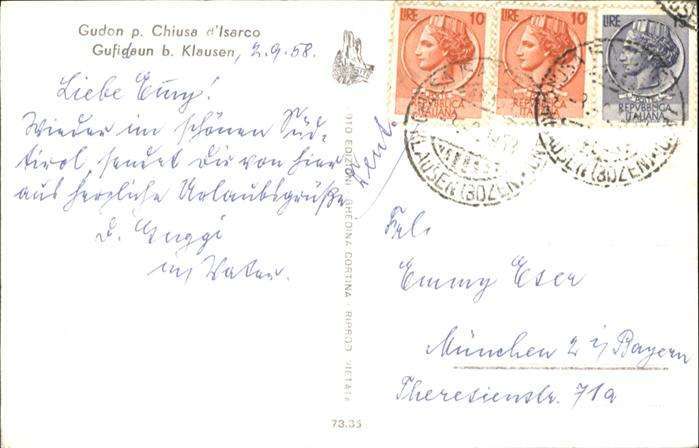 Gudon p. Chiusa d'Isarco
Gufidaun b. Klausen, 2.9.58.
Liebe Emmy!
Wieder im schönen Süd-
tirol, sendet Dir von hier
aus herzliche Urlaubsgrüße
D. Guggi
mit Vater.
FOTO EDIZIONI GHEDINA CORTINA - RIPROD. VIETATA
73.35
LIRE 10
REPVBBLICA
ITALIANA
LIRE 10
REPVBBLICA
ITALIANA
LIRE
REPVBBLICA
ITALIANA
KLAUSEN (BOZEN)
KLAUSEN (BOZEN)
Frl.
Emmy Eser
München 2 i/Bayern
Theresienstr. 71a